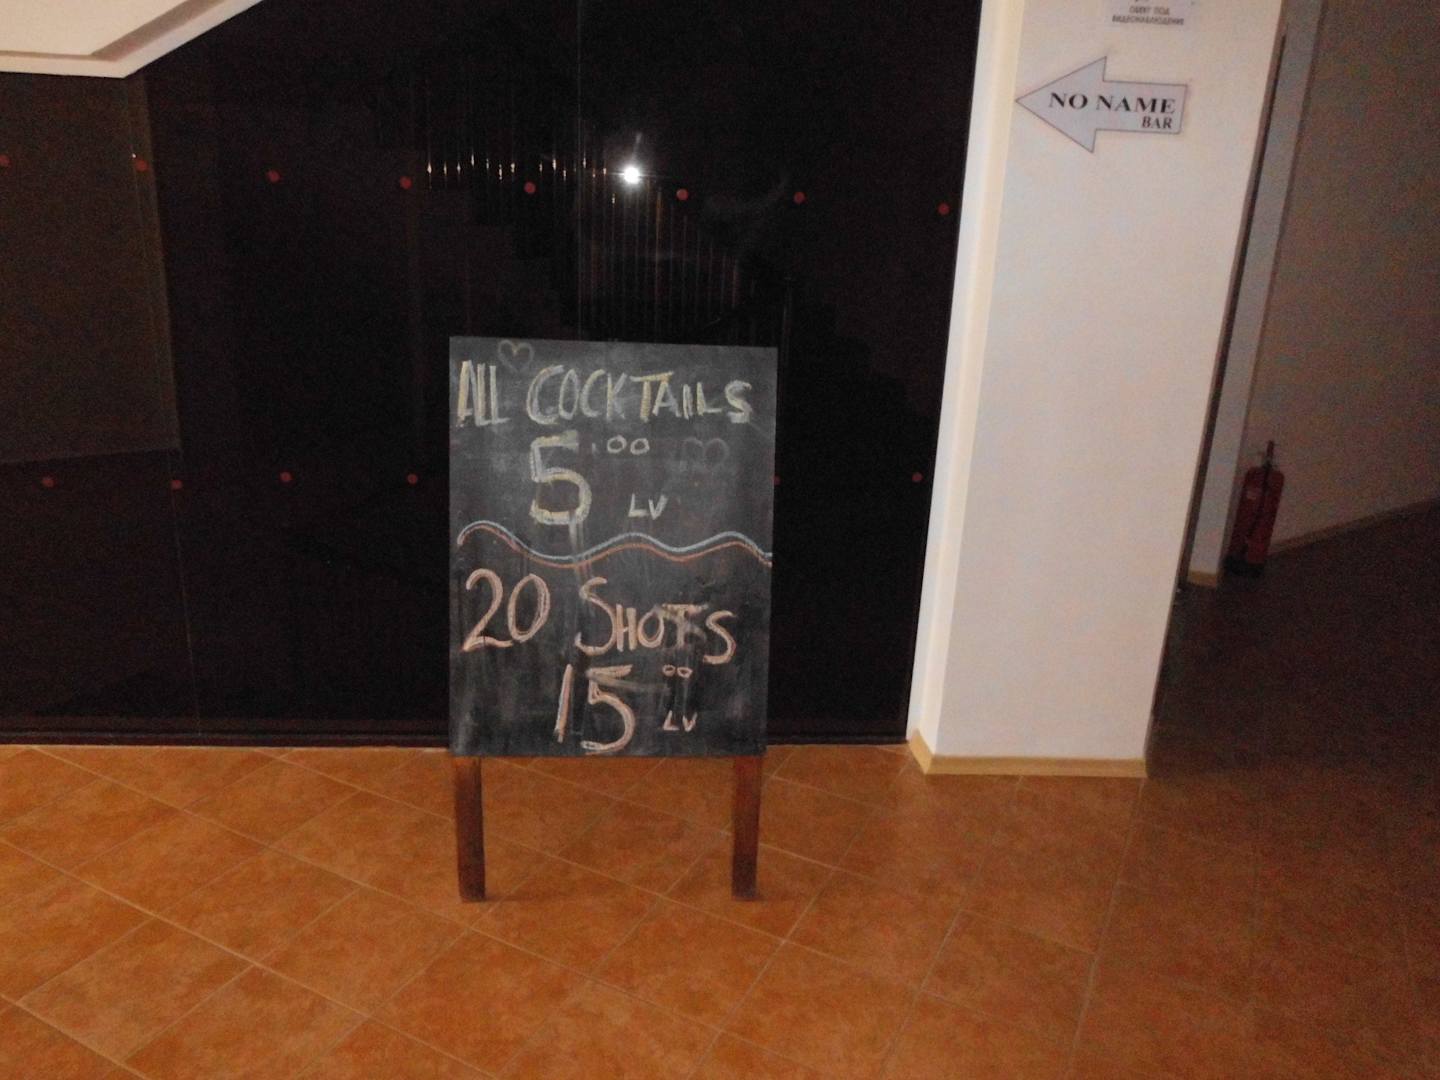 ALL COCKTAILS
5.00
LV
20 SHOTS
15 00
LV
ОБЕКТ ПОД
ВИДЕОНАБЛЮДЕНИЕ
NO NAME
BAR